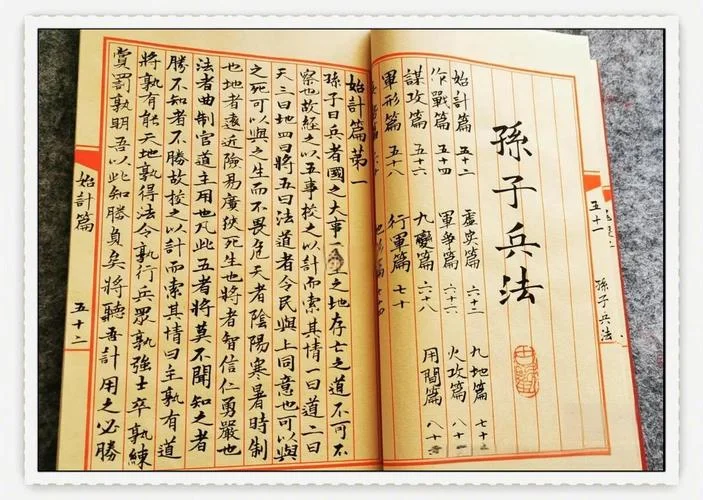 五十一
孫子兵法
孫子兵法
始計篇 五十二 虛實篇 六十二 九地篇
作戰篇 五十四 軍爭篇 六十六 火攻篇
謀攻篇 五十六 九變篇 六十八 用間篇
軍形篇 五十八 行軍篇 七十
始計篇第一
孫子曰兵者國之大事之地存亡之道不可不
察也故經之以五事校之以計而索其情一曰道二曰
天三曰地四曰將五曰法道者令民與上同意也可以與
之死可以與之生而不畏危天者陰陽寒暑時制
也地者遠近險易廣狹死生也將者智信仁勇嚴也
法者曲制官道主用也凡此五者將莫不聞知之者
勝不知者不勝故校之以計而索其情曰主孰有道
將孰有能天地孰得法令孰行兵眾孰強士卒孰練
賞罰孰明吾以此知勝負矣將聽吾計用之必勝
始計篇
五十二